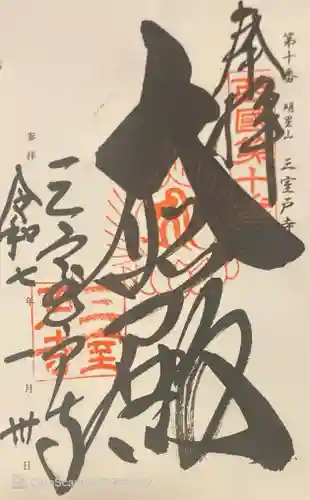 第十番 明星山 三室戸寺
奉拝
西国第十番
大悲殿
三室戸寺
三室戸寺
参拝
令和七年一月卅日
CamScanner